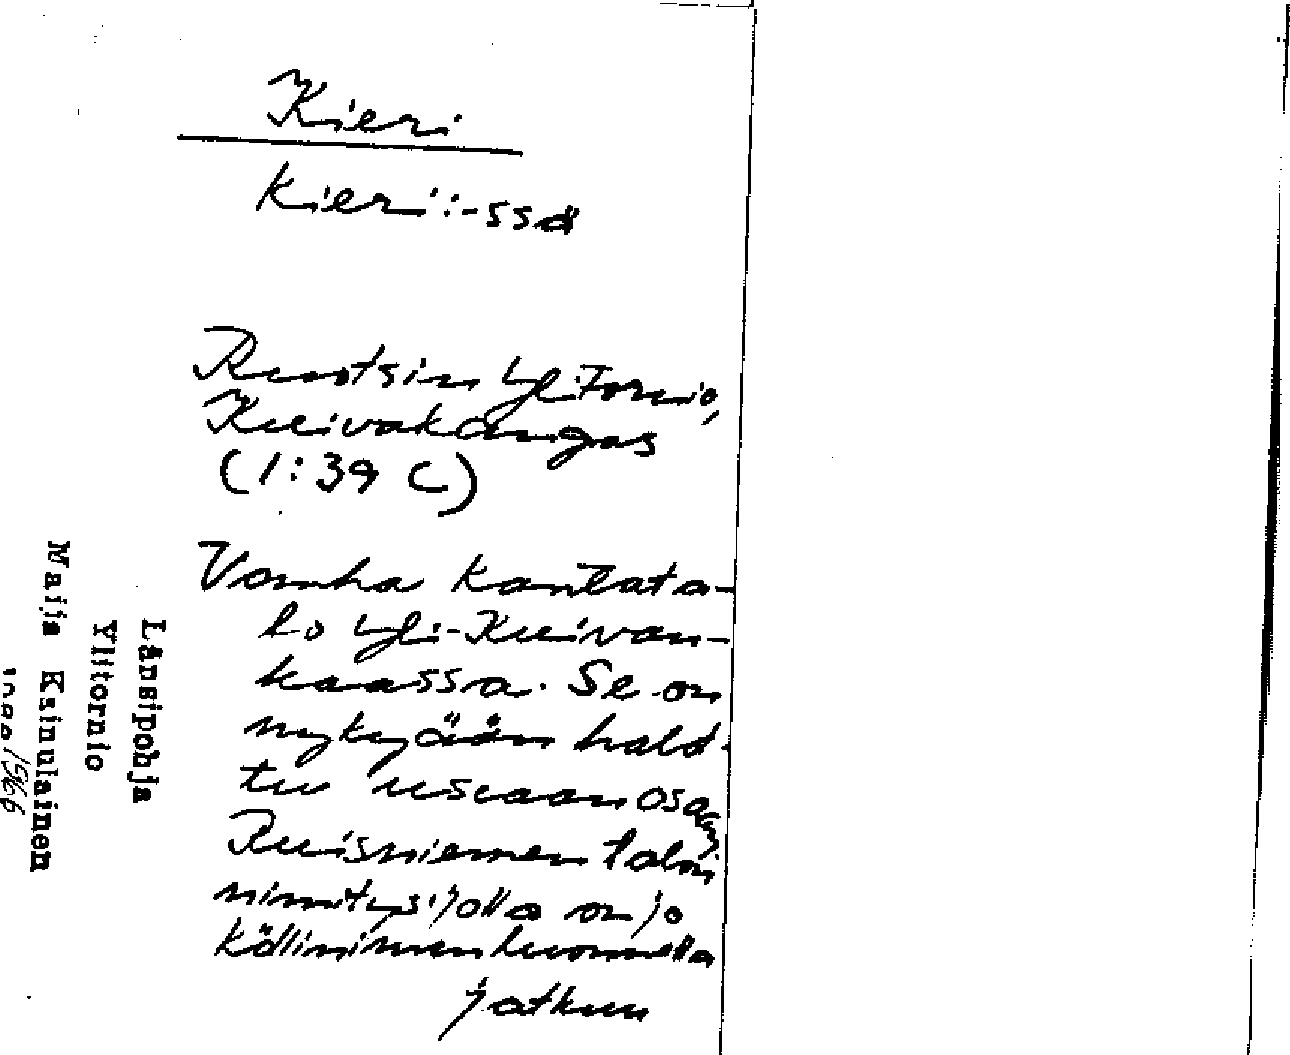 Kieri
Kieri:-ssä
Ruotsin Ylitornio,
Kuivakangas
(1:39 C)
Vanha kantata-
lo Yli-Kuivan-
kaassa. Se on
nykyään halot-
tu useaan osaan
Ruisniemen talon
nimitys, jolla on jo
köllinimen luonnetta
jatkuu
Länsipohja
Ylitornio
Maija Ksinulainen
1966